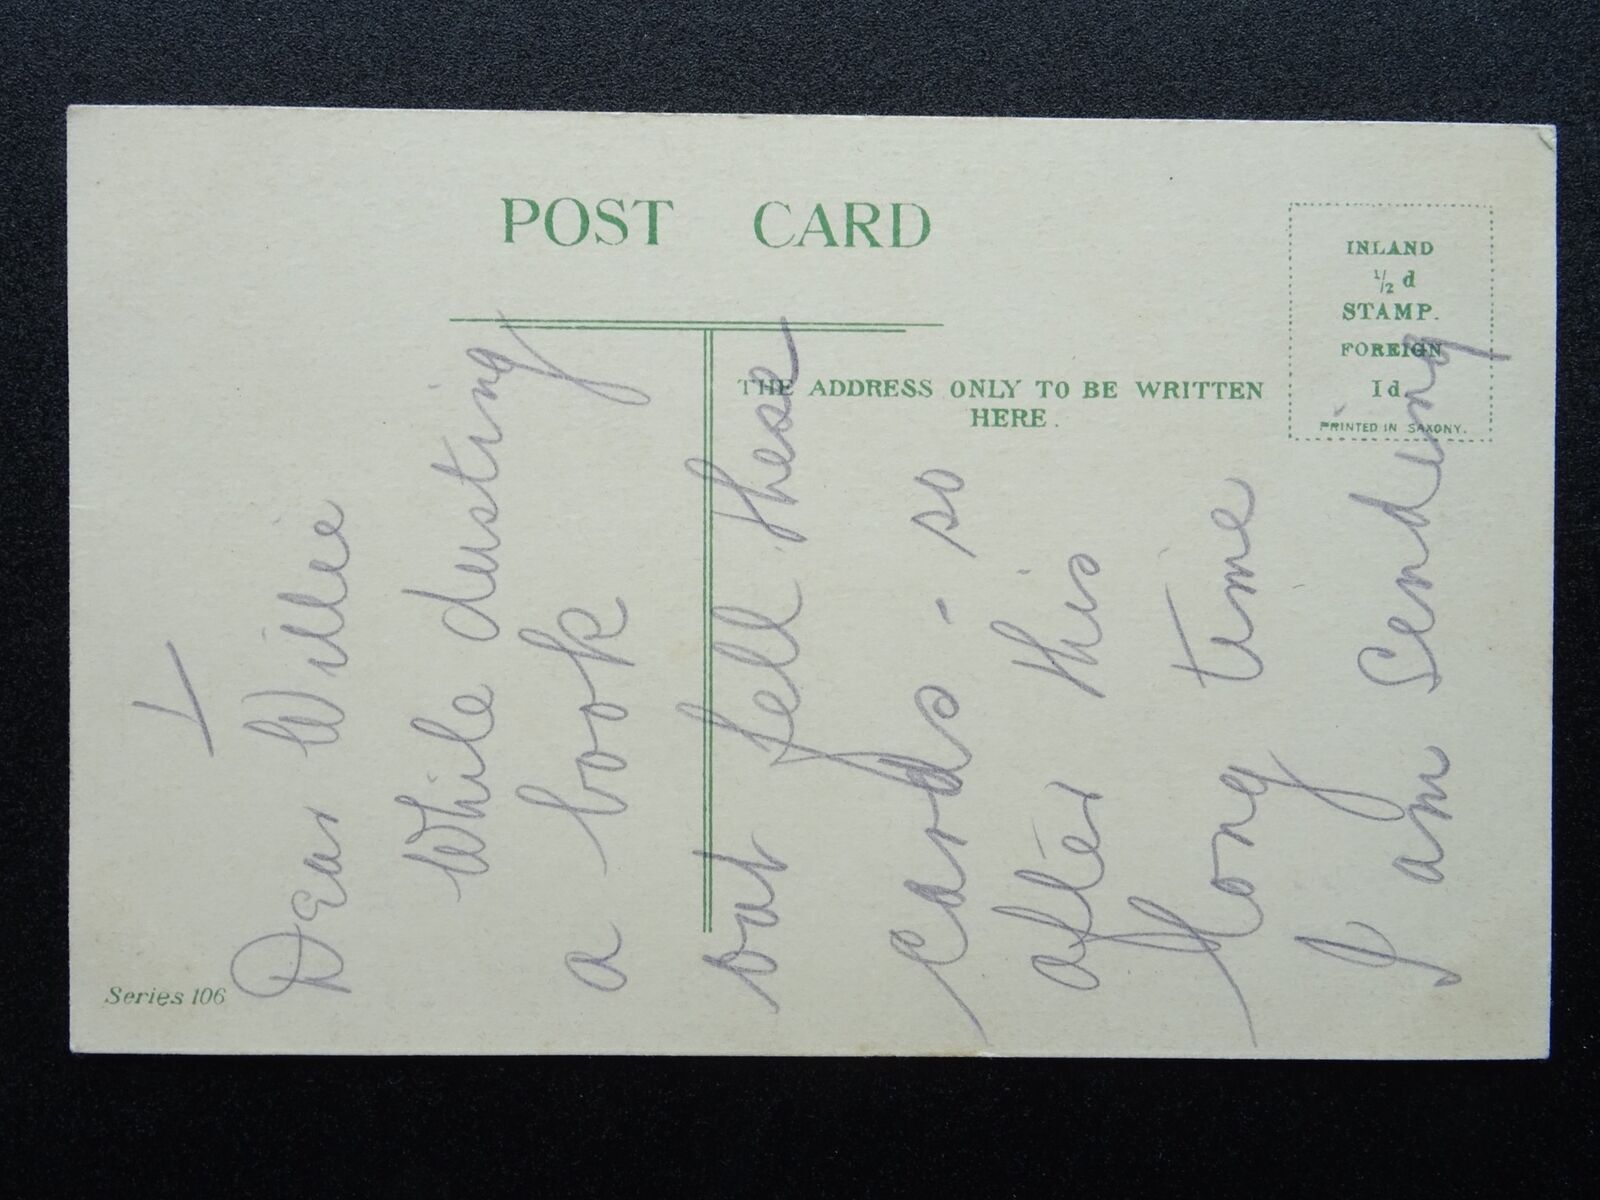 POST CARD
INLAND
½ d
STAMP.
FOREIGN
1d.
PRINTED IN SAXONY.
THE ADDRESS ONLY TO BE WRITTEN
HERE.
Series 106
I
Dear Willie
While dusting
a book
out fell these
cards - so
after this
long time
I am sending